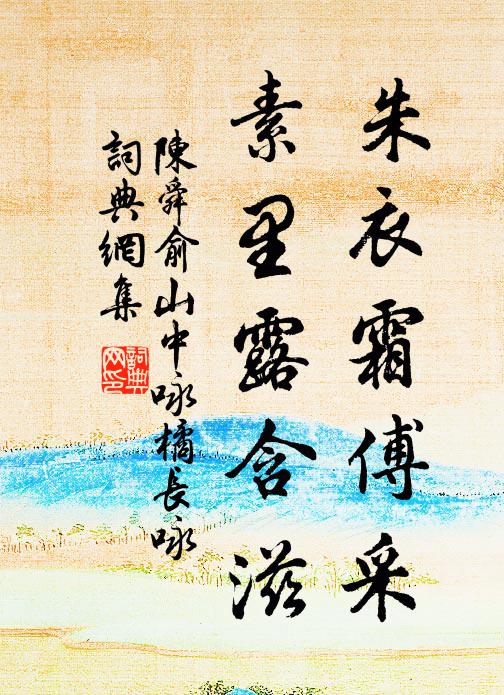 朱衣霜傅采
素里露含滋
陳舜俞山中咏橘長咏
詞典網集
詞典网印